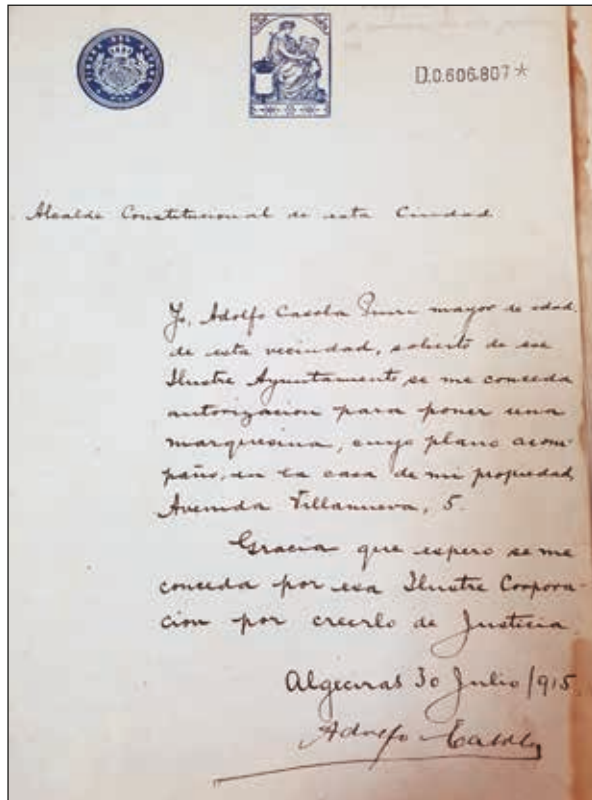 D.0.606.807*
Alcalde Constitucional de esta Ciudad
Yo, Adolfo Casola mayor de edad,
de esta vecindad, solicito de ese
Ilustre Ayuntamiento, se me conceda
autorización para poner una
marquesina, cuyo plano acom-
paño, en la casa de mi propiedad,
Avenida Villanueva, 5.
Gracia que espero se me
conceda por esa Ilustre Corpora-
ción por creerlo de Justicia
Algeciras 30 Julio /915.
Adolfo Casola